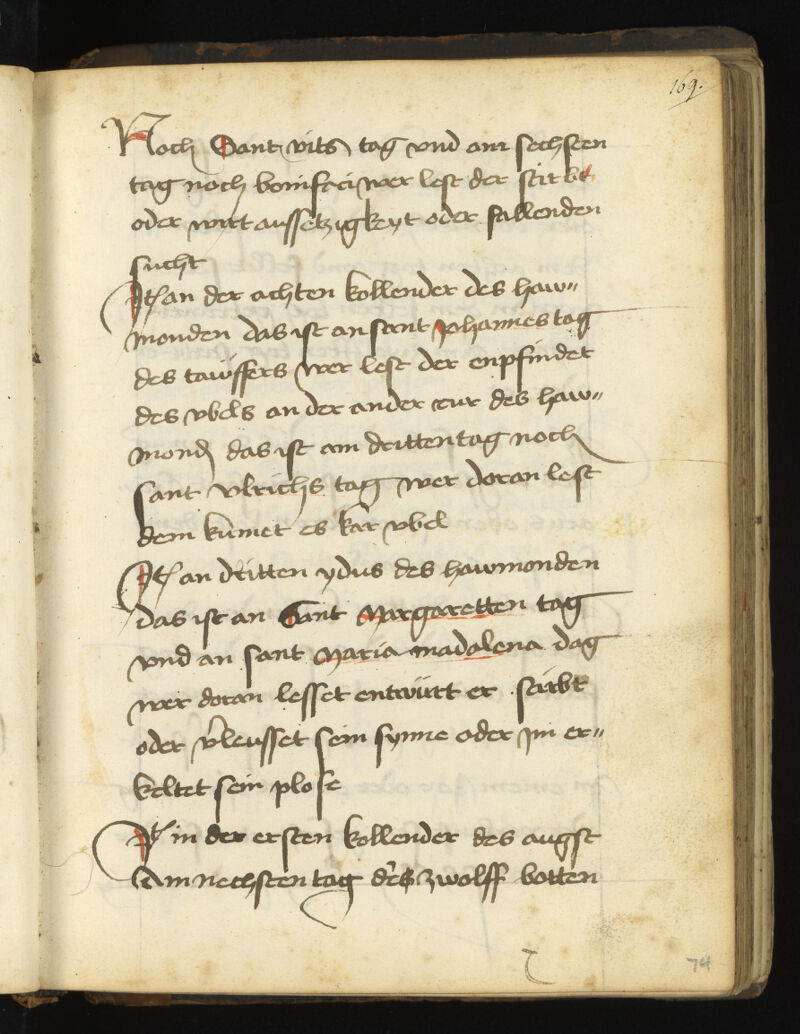 169.
Noch Sant vits tag vnd am sechsten
tag noch bonifaci wer lest der stirbt
oder wirt aussetzigkeyt oder fallenden
sucht
Jt an der achten kollender des haw„
monden das ist an sant Johannes tag
des tawffers wer lest der enpfindet
des vbels an der ander des haw„
mond das ist am dritten tag noch
sant vlrichs tag wer doran lest
dem kumet es kar vbel
Jt an dritten ydus des hawmonden
das ist an Sant Margaretten tag
vnd an sant Maria madalena dag
wer doran lesset entwurt er stirbt
oder v̾leusset sein synne oder jm er„
keltet sein plose
Jt in der ersten kollender des augst
Am nechsten tag des zwolff botten
74